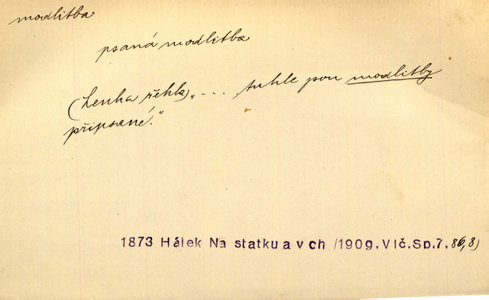 modlitba
psaná modlitba
(Lenka řekla) „ - ... tuhle jsou modlitby
připsané."
1873 Hálek Na statku a v ch /1909, Vlč. Sp. 7, 86,8)